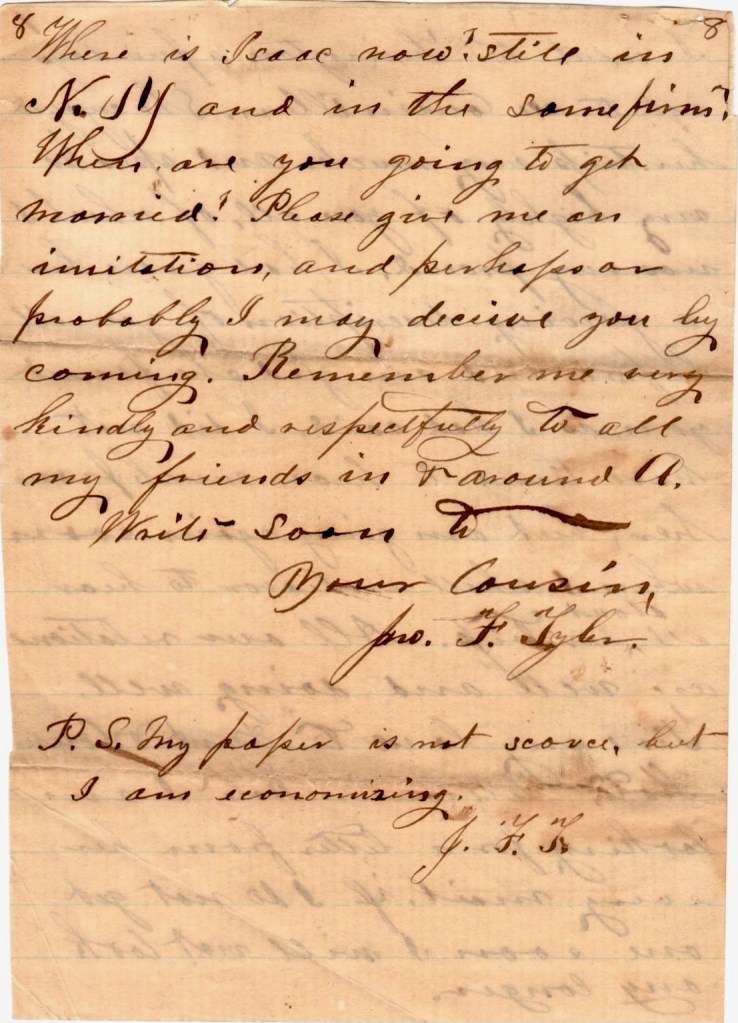 8 8
Where is Isaac now? still in
N. Y and in the same firm?
When are you going to get
married? Please give me an
invitation, and perhaps or
probably I may decieve you by
coming. Remember me very
kindly and respectfully to all
my friends in & around A.
Write soon to
Your Cousin,
Jno. F. Tyler.
P. S. My paper is not scarce, but
I am economizing.
J. F. T.